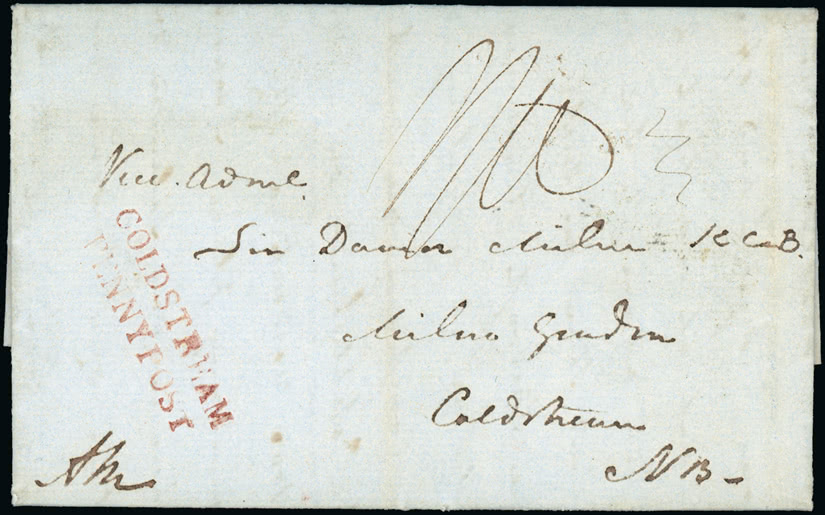 Vice. Adml.
Sir David Milne K C B.
Milne Graden
Coldstream
NB-
COLDSTREAM
PENNY POST